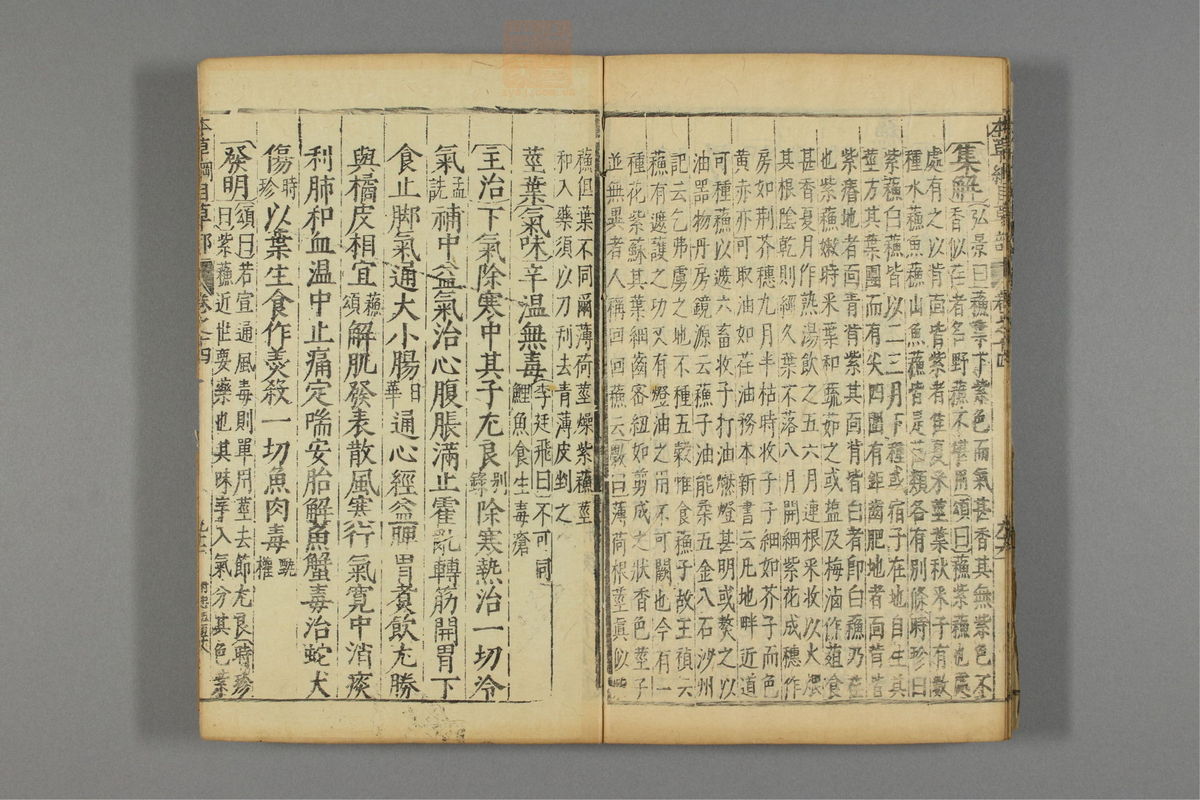 本草綱目草部 卷之十四
集解弘景曰蘇葉下紫色而氣甚香其無紫色不
香似荏者名野蘇不堪用頌曰蘇紫蘇也處
處有之以背面皆紫者佳夏采莖葉秋采子有數
種水蘇魚蘇山魚蘇皆是荏類各有別條時珍曰
紫蘇白蘇皆以二三月下種或宿子在地自生其
莖方其葉團而有尖四圍有鉅齒肥地者面背皆
紫瘠地者面青背紫其面背皆白者即白蘇乃荏
也紫蘇嫩時采葉和蔬茹之或塩及梅滷作葅食
甚香夏月作熟湯飲之五六月連根采收以火煨
其根陰乾則經久葉不落八月開細紫花成穗作
房如荊芥穗九月半枯時收子子細如芥子而色
黃赤亦可取油如荏油務本新書云凡地畔近道
可種蘇以遮六畜收子打油燃燈甚明或熬之以
油器物丹房鏡源云蘇子油能柔五金八石沙州
記云乞弗虜之地不種五穀惟食蘇子故王禎云
蘇有遮護之功又有燈油之用不可闕也今有一
種花紫蘇其葉細齒密紐如剪成之狀香色莖子
並無異者人稱回回蘇云斆曰薄荷根莖真似紫
蘇但葉不同爾薄荷莖燥紫蘇莖
和入藥須以刀刮去青薄皮剉之
莖葉氣味辛溫無毒李廷飛曰不可同
鯉魚食生毒瘡
主治下氣除寒中其子尤良別錄除寒熱治一切冷
氣孟詵補中益氣治心腹脹滿止霍亂轉筋開胃下
食止脚氣通大小腸日華通心經益脾胃煮飲尤勝
與橘皮相宜蘇頌解肌發表散風寒行氣寬中消痰
利肺和血溫中止痛定喘安胎解魚蟹毒治蛇犬
傷時珍以葉生食作羹殺一切魚肉毒甄權
發明頌曰若宣通風毒則單用莖去節尤良時珍
曰紫蘇近世要藥也其味辛入氣分其色紫
本草綱目草部 卷之十四